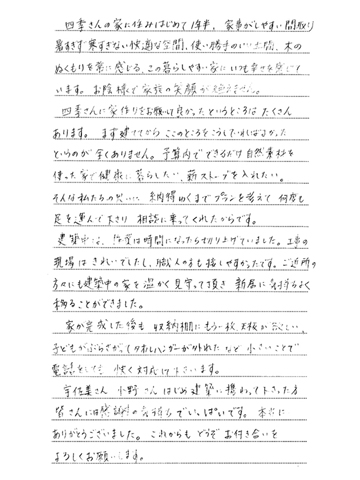 四季さんの家に住みはじめて1年半、家事がしやすい間取り
暑すぎず寒すぎない快適な空間、使い勝手のいい土間、木の
ぬくもりを常に感じる、この暮らしやすい家にいつも幸せを感じて
います。お陰様で家族の笑顔が絶えません。
四季さんに家作りをお願いして良かったというところはたくさん
あります。まず建ててからここのところをこうしていればよかった
というのが全くありません。予算内でできるだけ自然素材を
使った家で健康に暮らしたい、薪ストーブを入れたい。
そんな私たちの思いに納得いくまでプランを考えて何度も
足を運んで下さり相談に乗ってくれたからです。
建築中は、作業は時間になったら切り上げていました。工事の
現場はきれいでしたし、職人さんも話しやすかったです。ご近所の
方々にも建築中の家を温かく見守って頂き新居に気持ちよく
移ることができました。
家が完成した後も収納棚にもう一枚天板が欲しい、
子どもがぶらさがってタオルハンガーが外れたなど小さいことで
電話をしても快く対応して下さいます。
宇佐美さん小野さんはじめ建築に携わって下さった方
皆さんには感謝の気持ちでいっぱいです。本当に
ありがとうございました。これからもどうぞお付き合いを
よろしくお願いします。